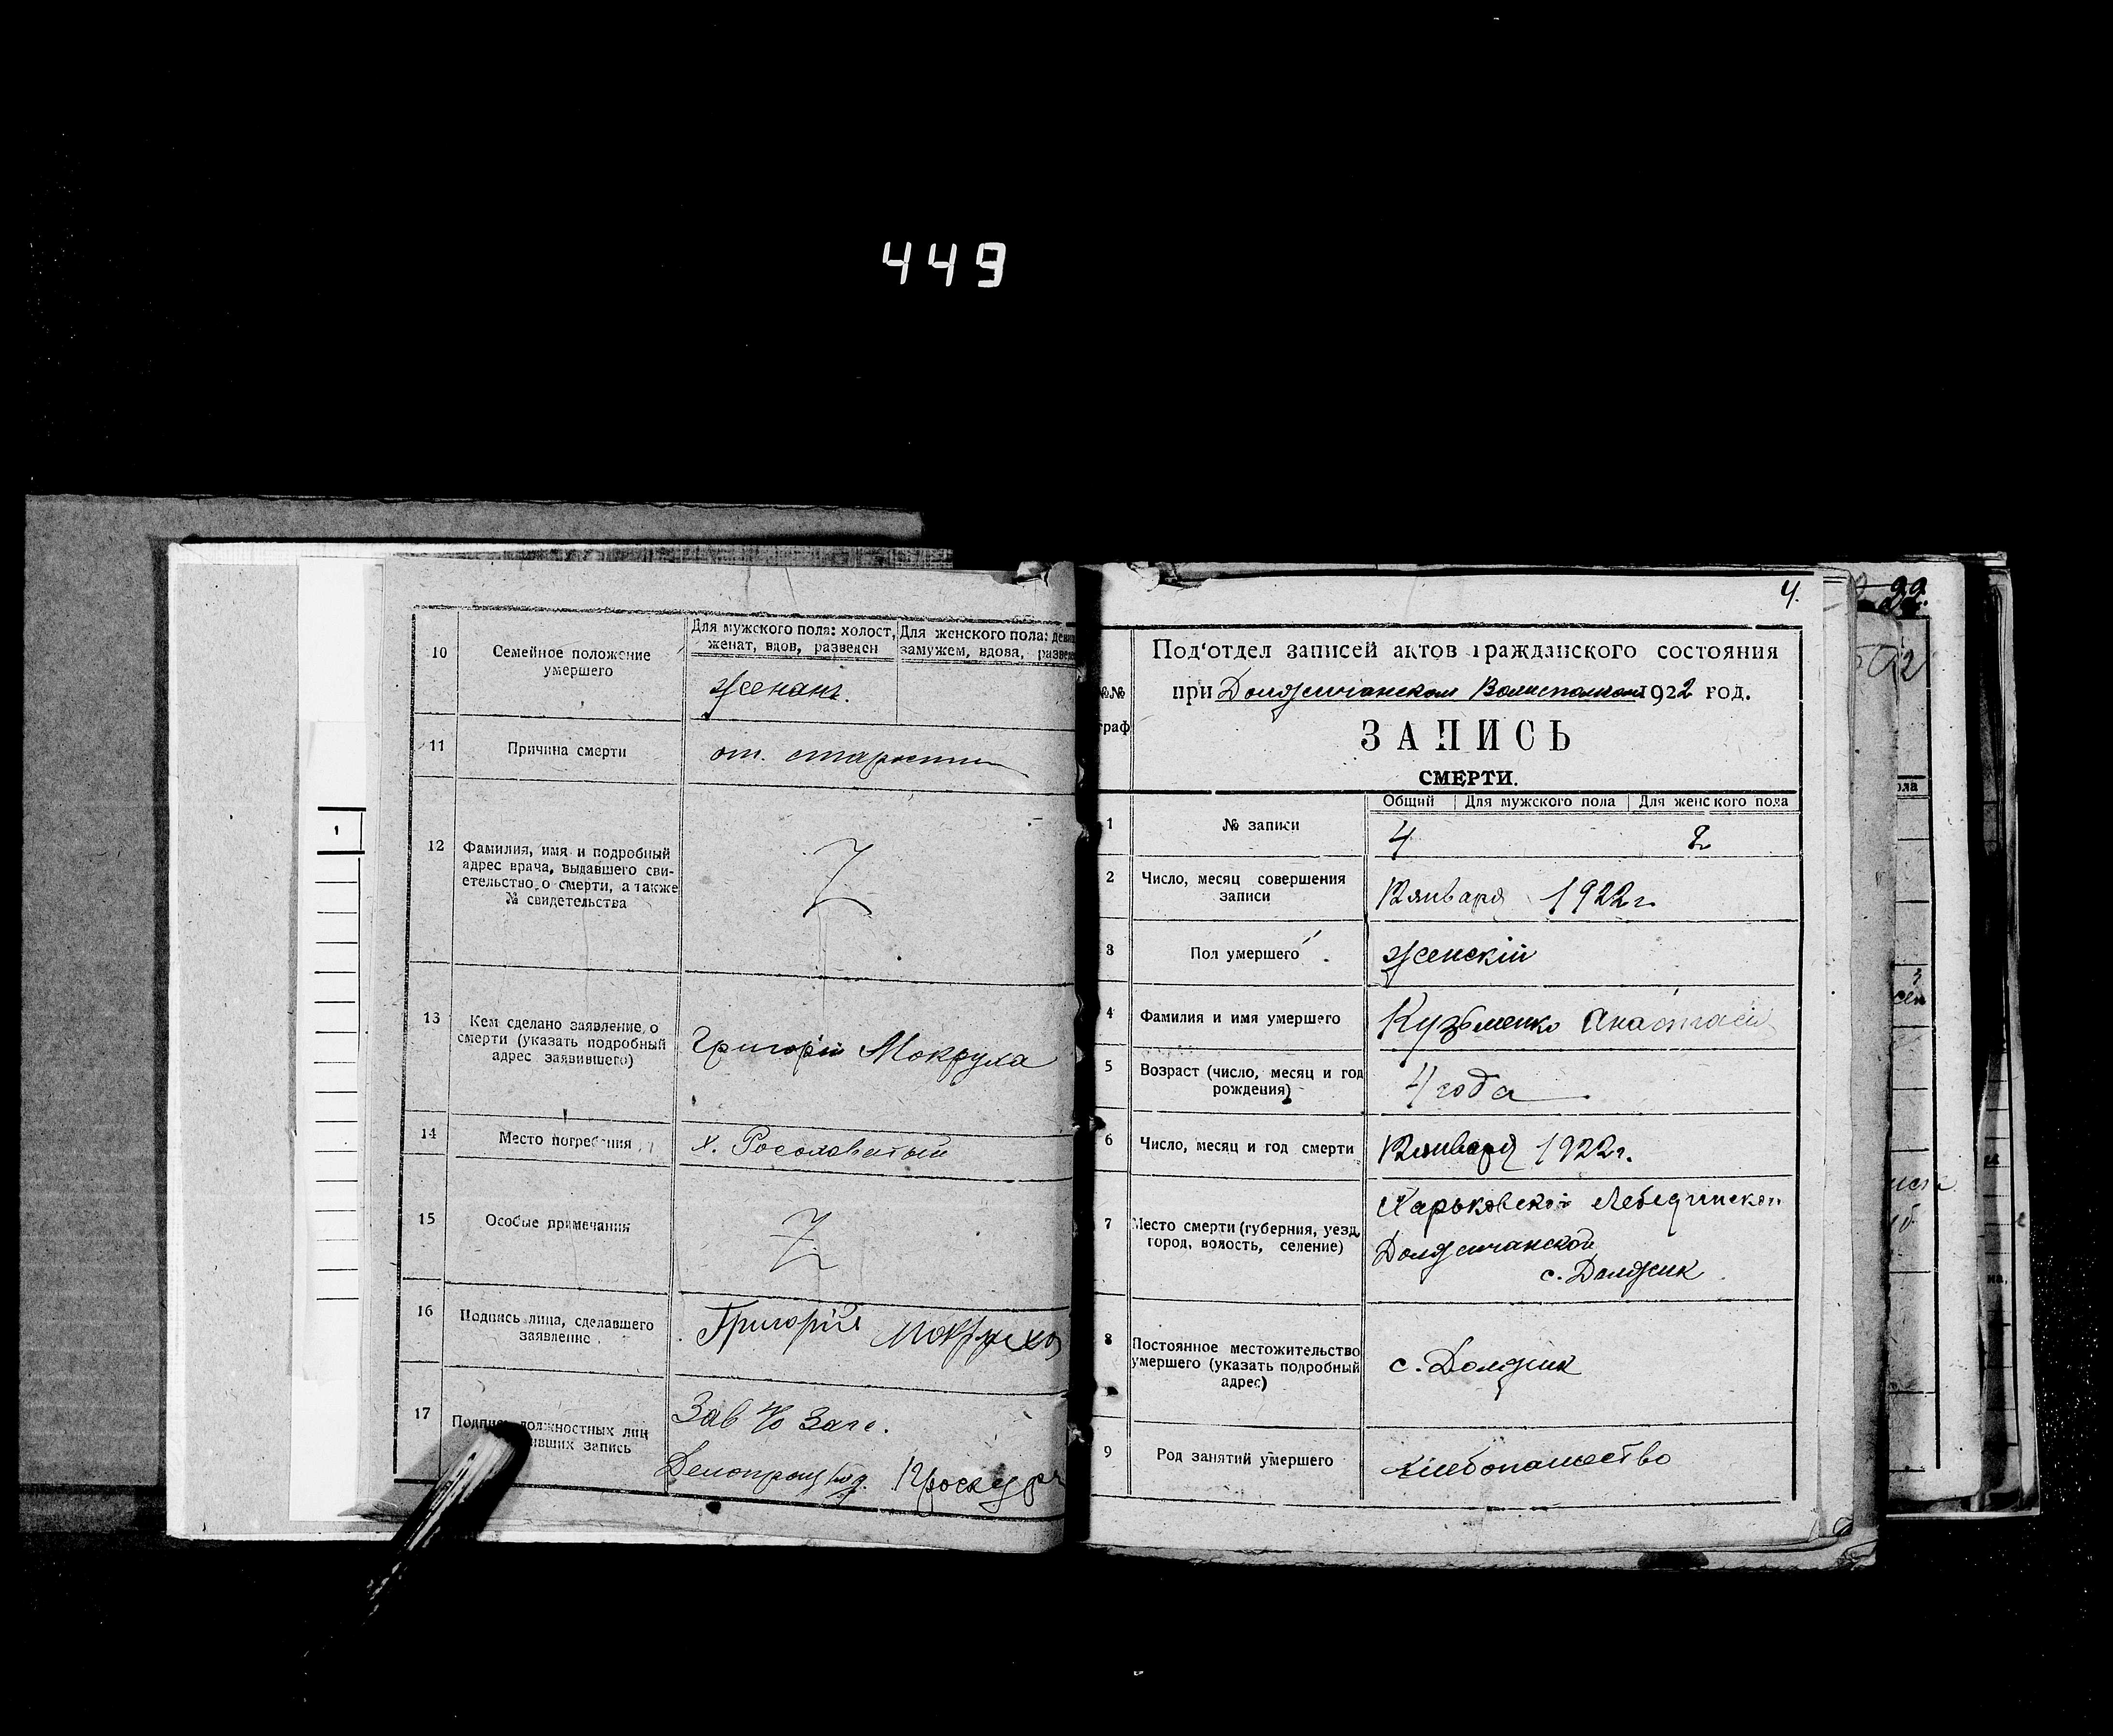 449
10
Семейное положение
умершего
Для мужского пола: холост,
женат, вдов, разведен
Для женского пола:
замужем, вдова,
женат.
11
Причина смерти
от. старости
12
Фамилия, имя и подробный
адрес врача, выдавшего сви-
етельство о смерти, а также
№ свидетельства
Z
13
Кем сделано заявление о
смерти (указать подробный
адрес заявившего)
Григорій Мокруха
14
Место погребения
х.
15
Особые примечания
Z
16
Подпись лица, сделавшего
заявление
Григорій Мокруха
17
должностных лиц
ивших запись
Зав п/о Загс.
Делопроизвод. Проскур
4.
№№
граф
Под'отдел записей актов гражданского состояния
при Должичанском Волисполкоме 1922 год.
ЗАПИСЬ
СМЕРТИ.
Общий
Для мужского пола
Для женского пола
1
№ записи
4
2
2
Число, месяц совершения
записи
12 января 1922 г.
3
Пол умершего
женскій
4
Фамилия и имя умершего
Кузьменко Анастасія
5
Возраст (число, месяц и год
рождения)
4 года
6
Число, месяц и год смерти
12 января 1922 г.
7
Место смерти (губерния, уезд,
город, волость, селение)
Харьковской Лебединской
Должичанской
с. Должик
8
Постоянное местожительство
умершего (указать подробный
адрес)
с. Должик
9
Род занятий умершего
хлебопашество